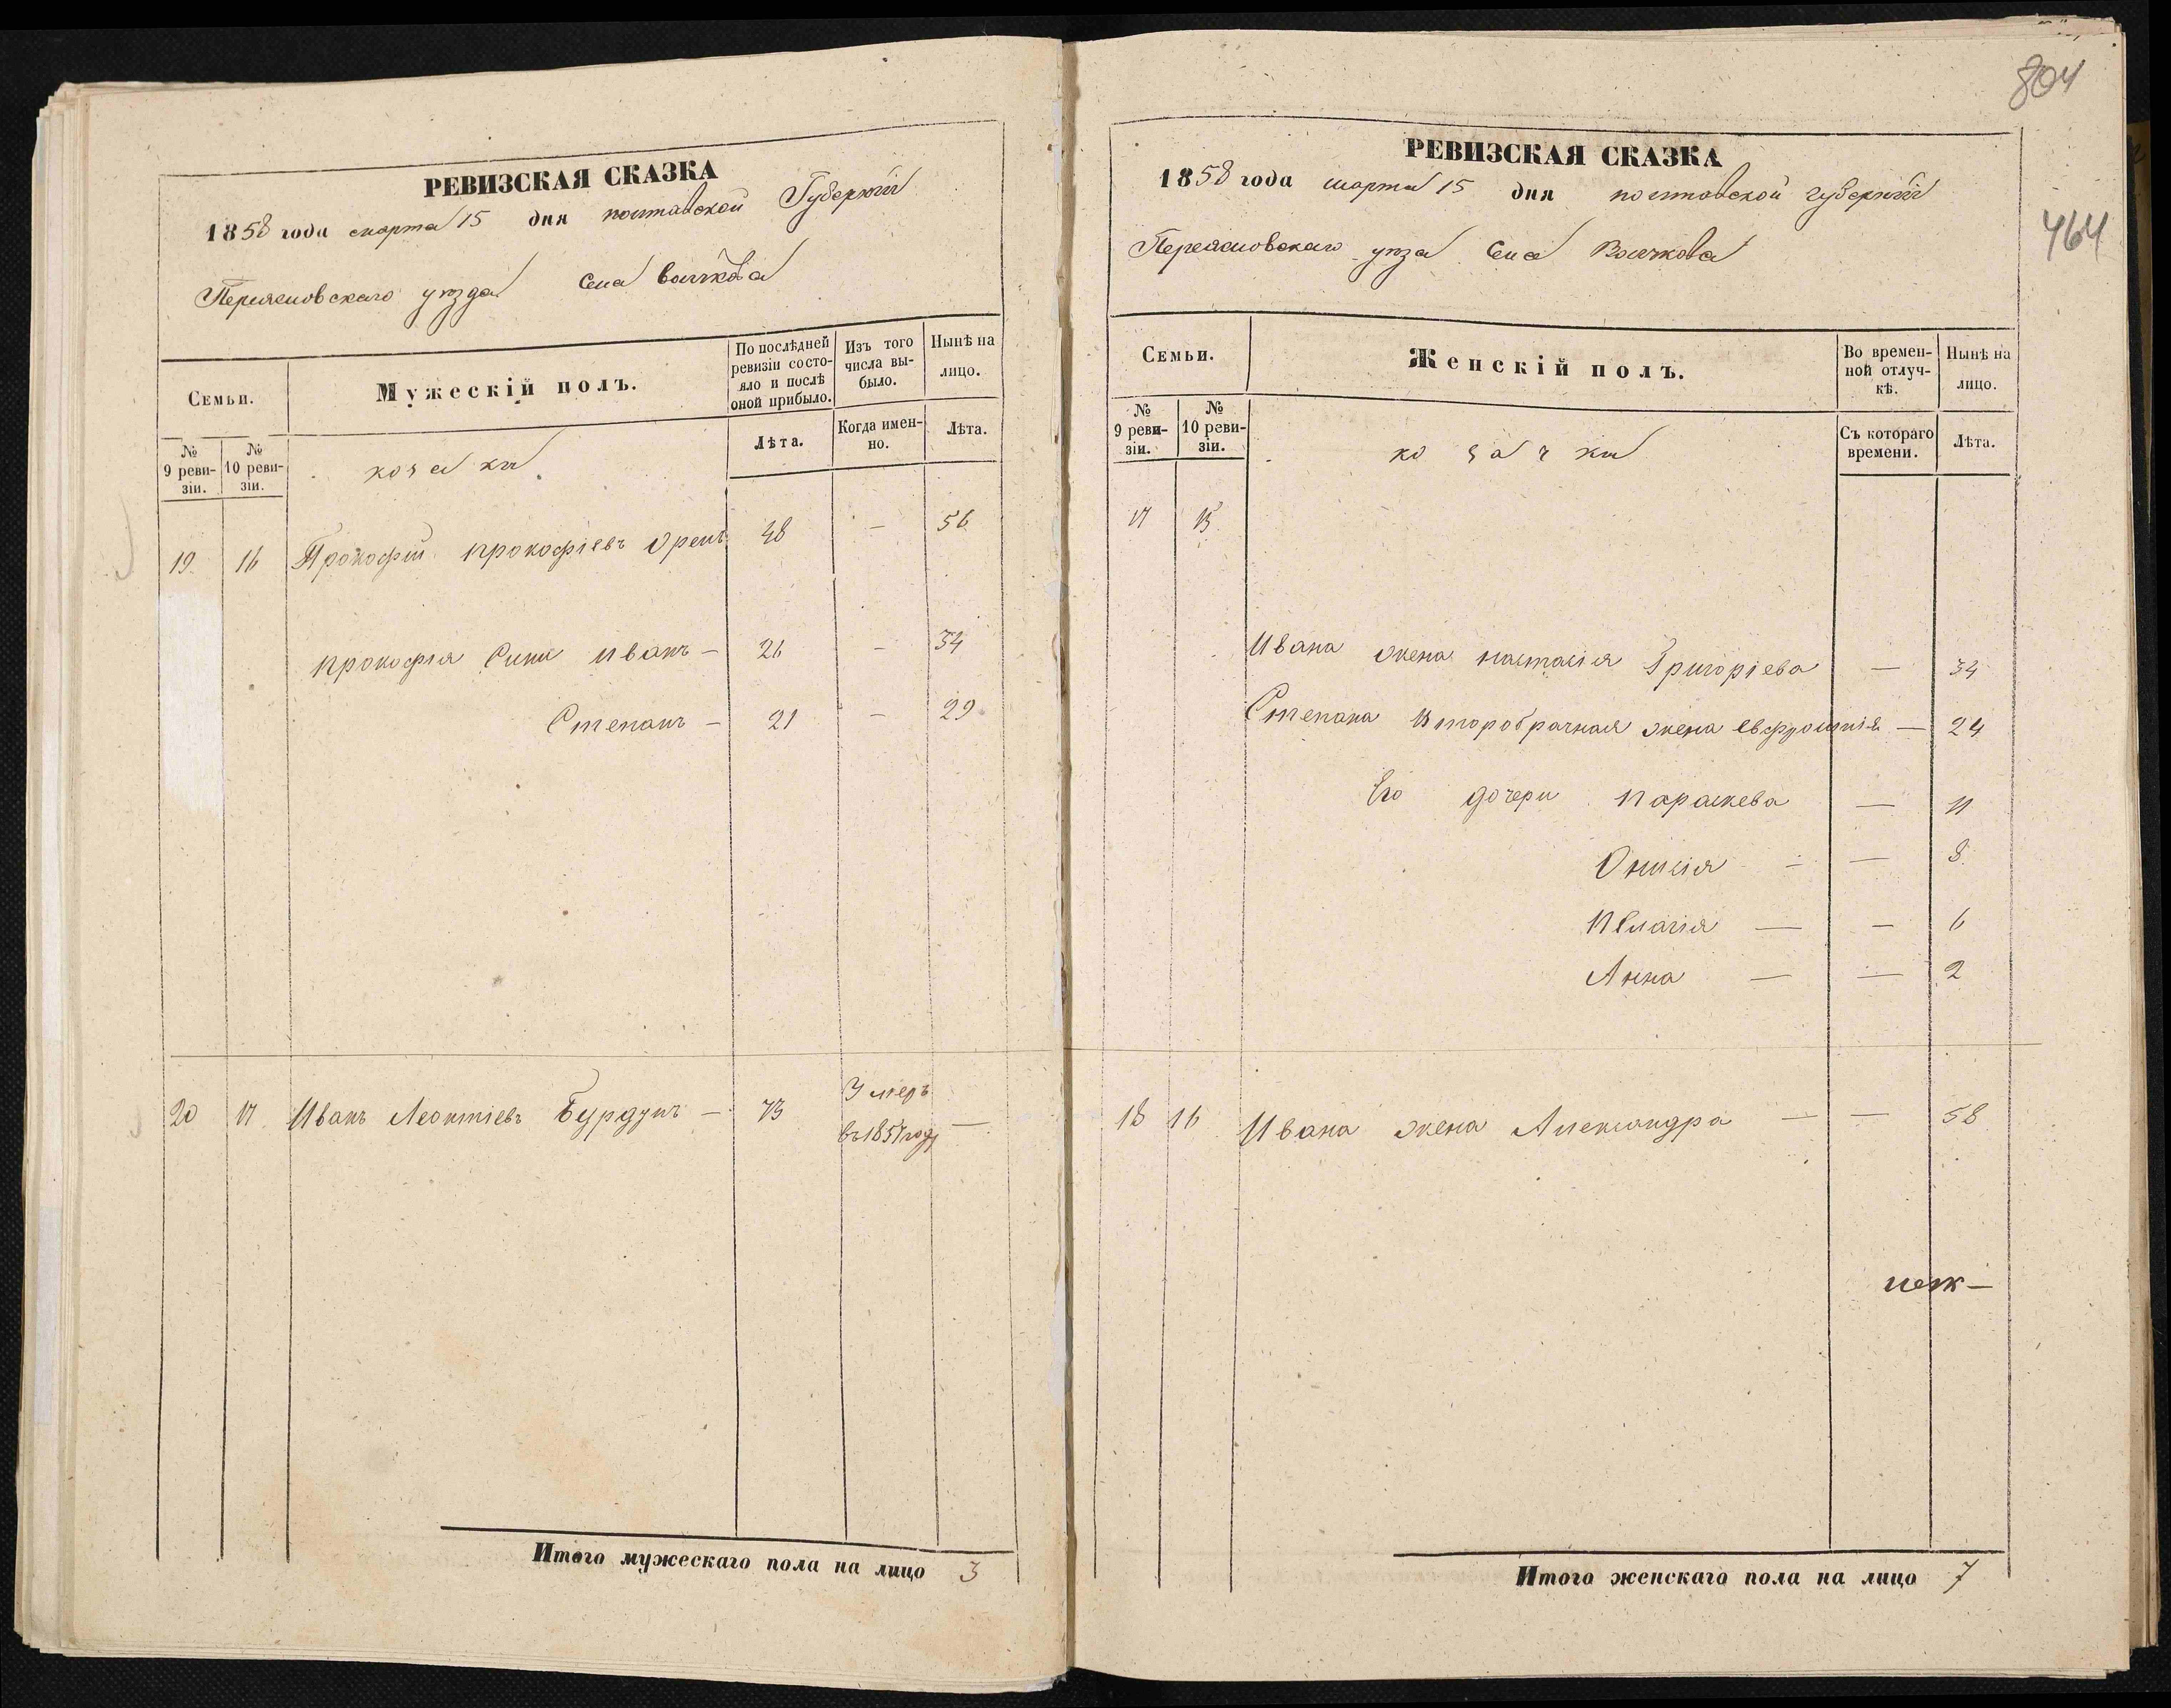 РЕВИЗСКАЯ СКАЗКА
1858 года марта 15 дня полтавской Губерніи
Переясловскаго уѣзда Села Волчкова
Семьи.
Мужескій полъ.
По послѣдней ревизіи состояло и послѣ оной прибыло.
Изъ того числа выбыло.
Нынѣ на лицо.
№ 9 ревизіи.
№ 10 ревизіи.
козаки
Лѣта.
Когда именно.
Лѣта.
19. 16 Прокофій прокофіевъ Орелъ 48 — 56
прокофія Сины иванъ — 26 — 34
Степанъ — 21 — 29
20 17 Иванъ Леонтіевъ Бурдунъ — 73 Умеръ въ 1857 году —
Итого мужескаго пола на лицо 3
804
464
РЕВИЗСКАЯ СКАЗКА
1858 года марта 15 дня полтавской губерніи
Переясловскаго уѣза Села Волчкова
Семьи.
Женскій полъ.
Во временной отлучкѣ.
Нынѣ на лицо.
№ 9 ревизіи.
№ 10 ревизіи.
козачки
Съ котораго времени.
Лѣта.
17 15
Ивана жена настасія Григоріева — 34
Степана Второбрачная жена Евфросинія — 24
Его дочери параскева — 11
Онисія — — 8
Пелагія — — 6
Анна — — 2
18 16 Ивана жена Александра — — 58
Итого женскаго пола на лицо 7